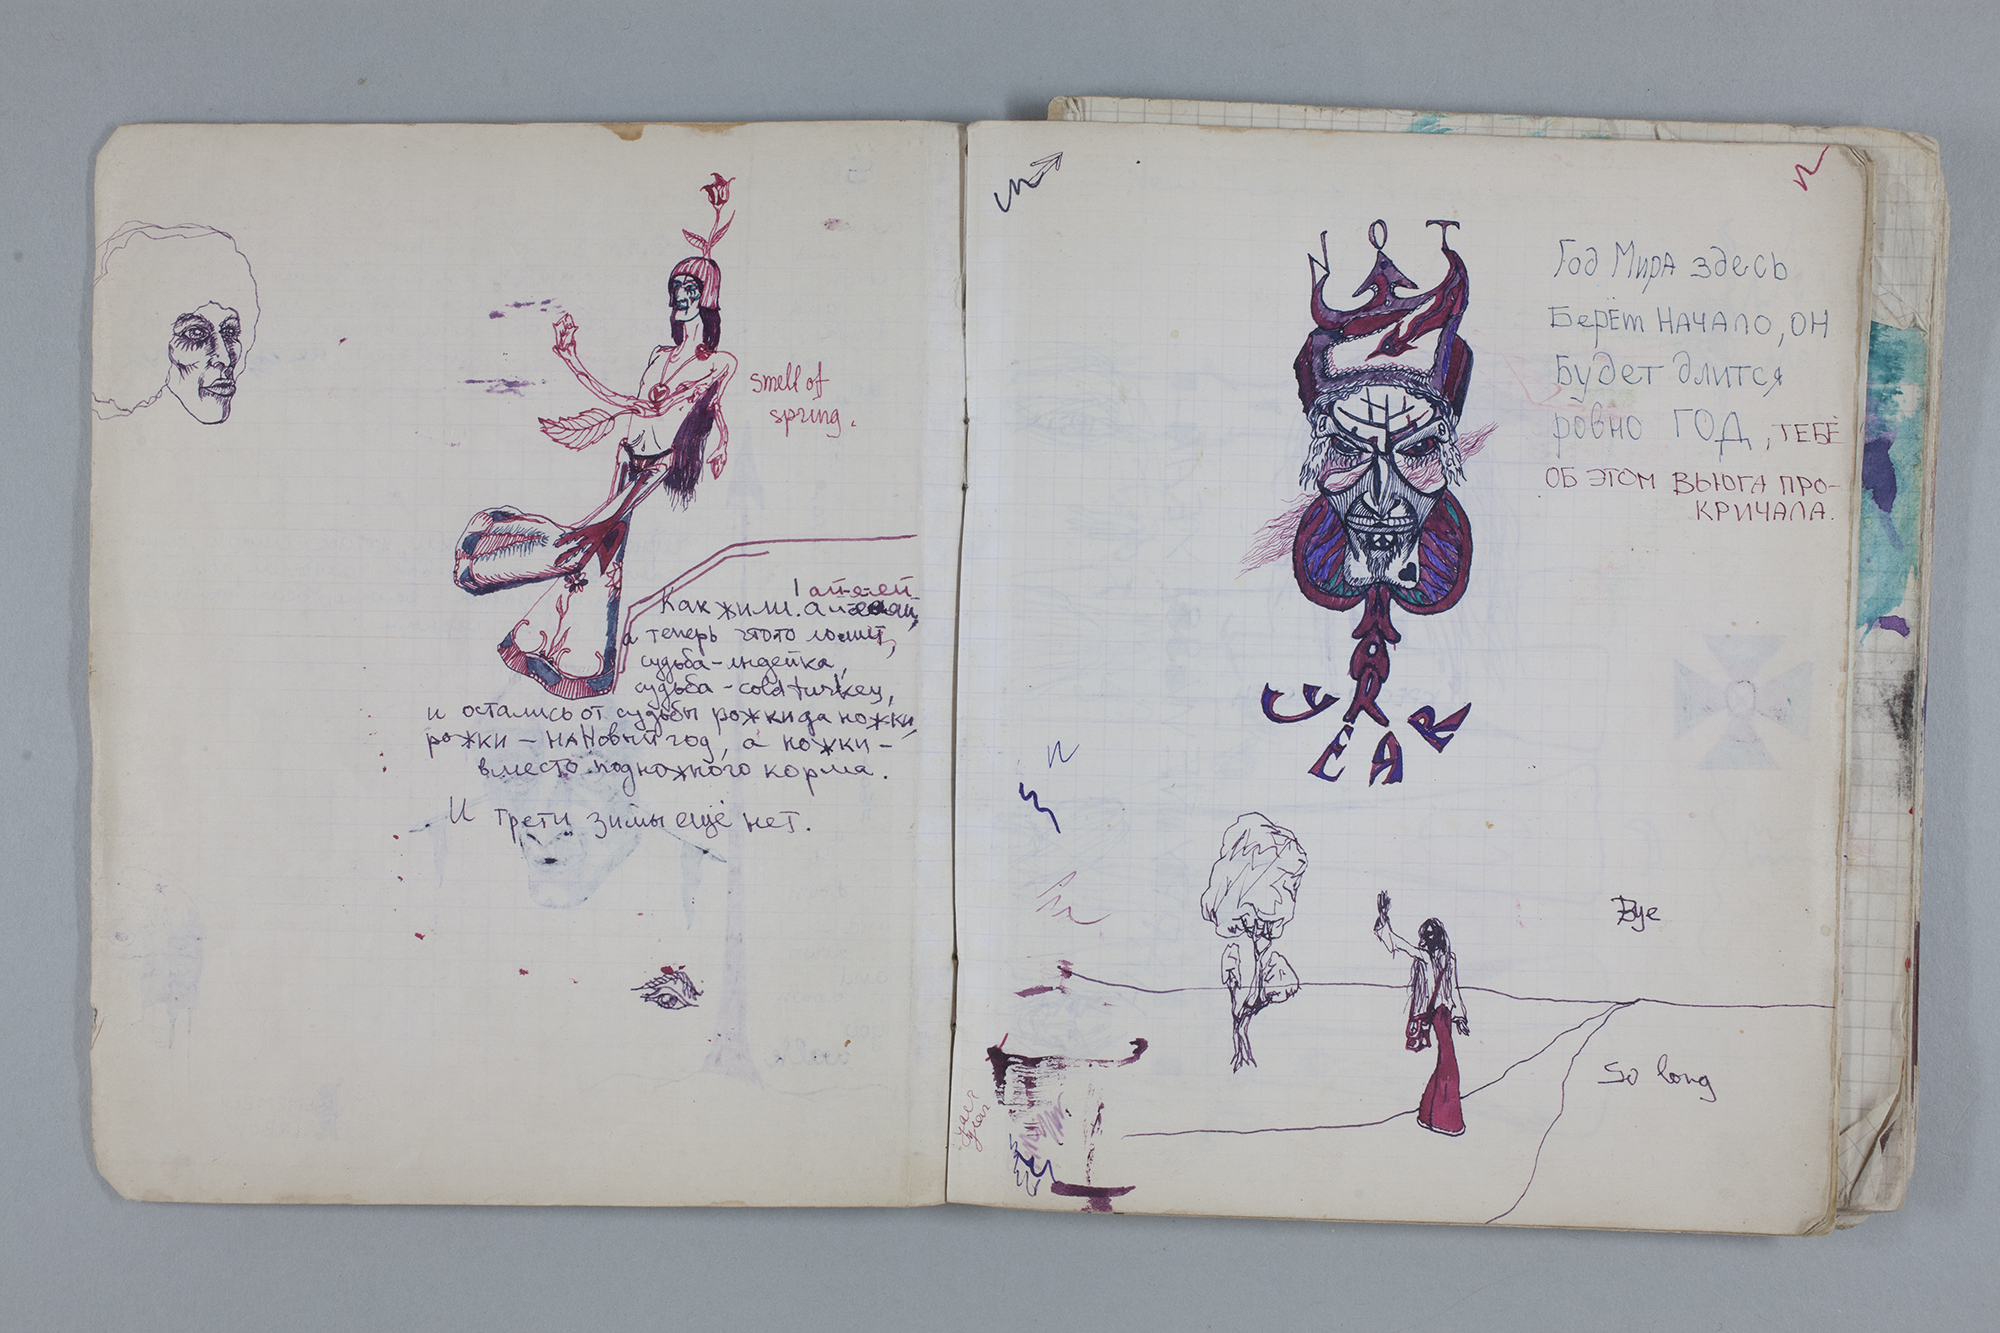 smell of
spring.
ай-я-яй
Как жили. Ай
а теперь что-то ломит,
судьба-индейка,
судьба - cold turkey,
и остались от судьбы рожки да ножки,
рожки - на Новый год, а ножки -
вместо подножного корма.
И трети зимы ещё нет.
NOT
WORR
YEAR
Год Мира здесь
Берёт НАЧАЛО, ОН
Будет длится
ровно ГОД, ТЕБЕ
ОБ ЭТОМ ВЬЮГА ПРО-
КРИЧАЛА.
Bye
So long